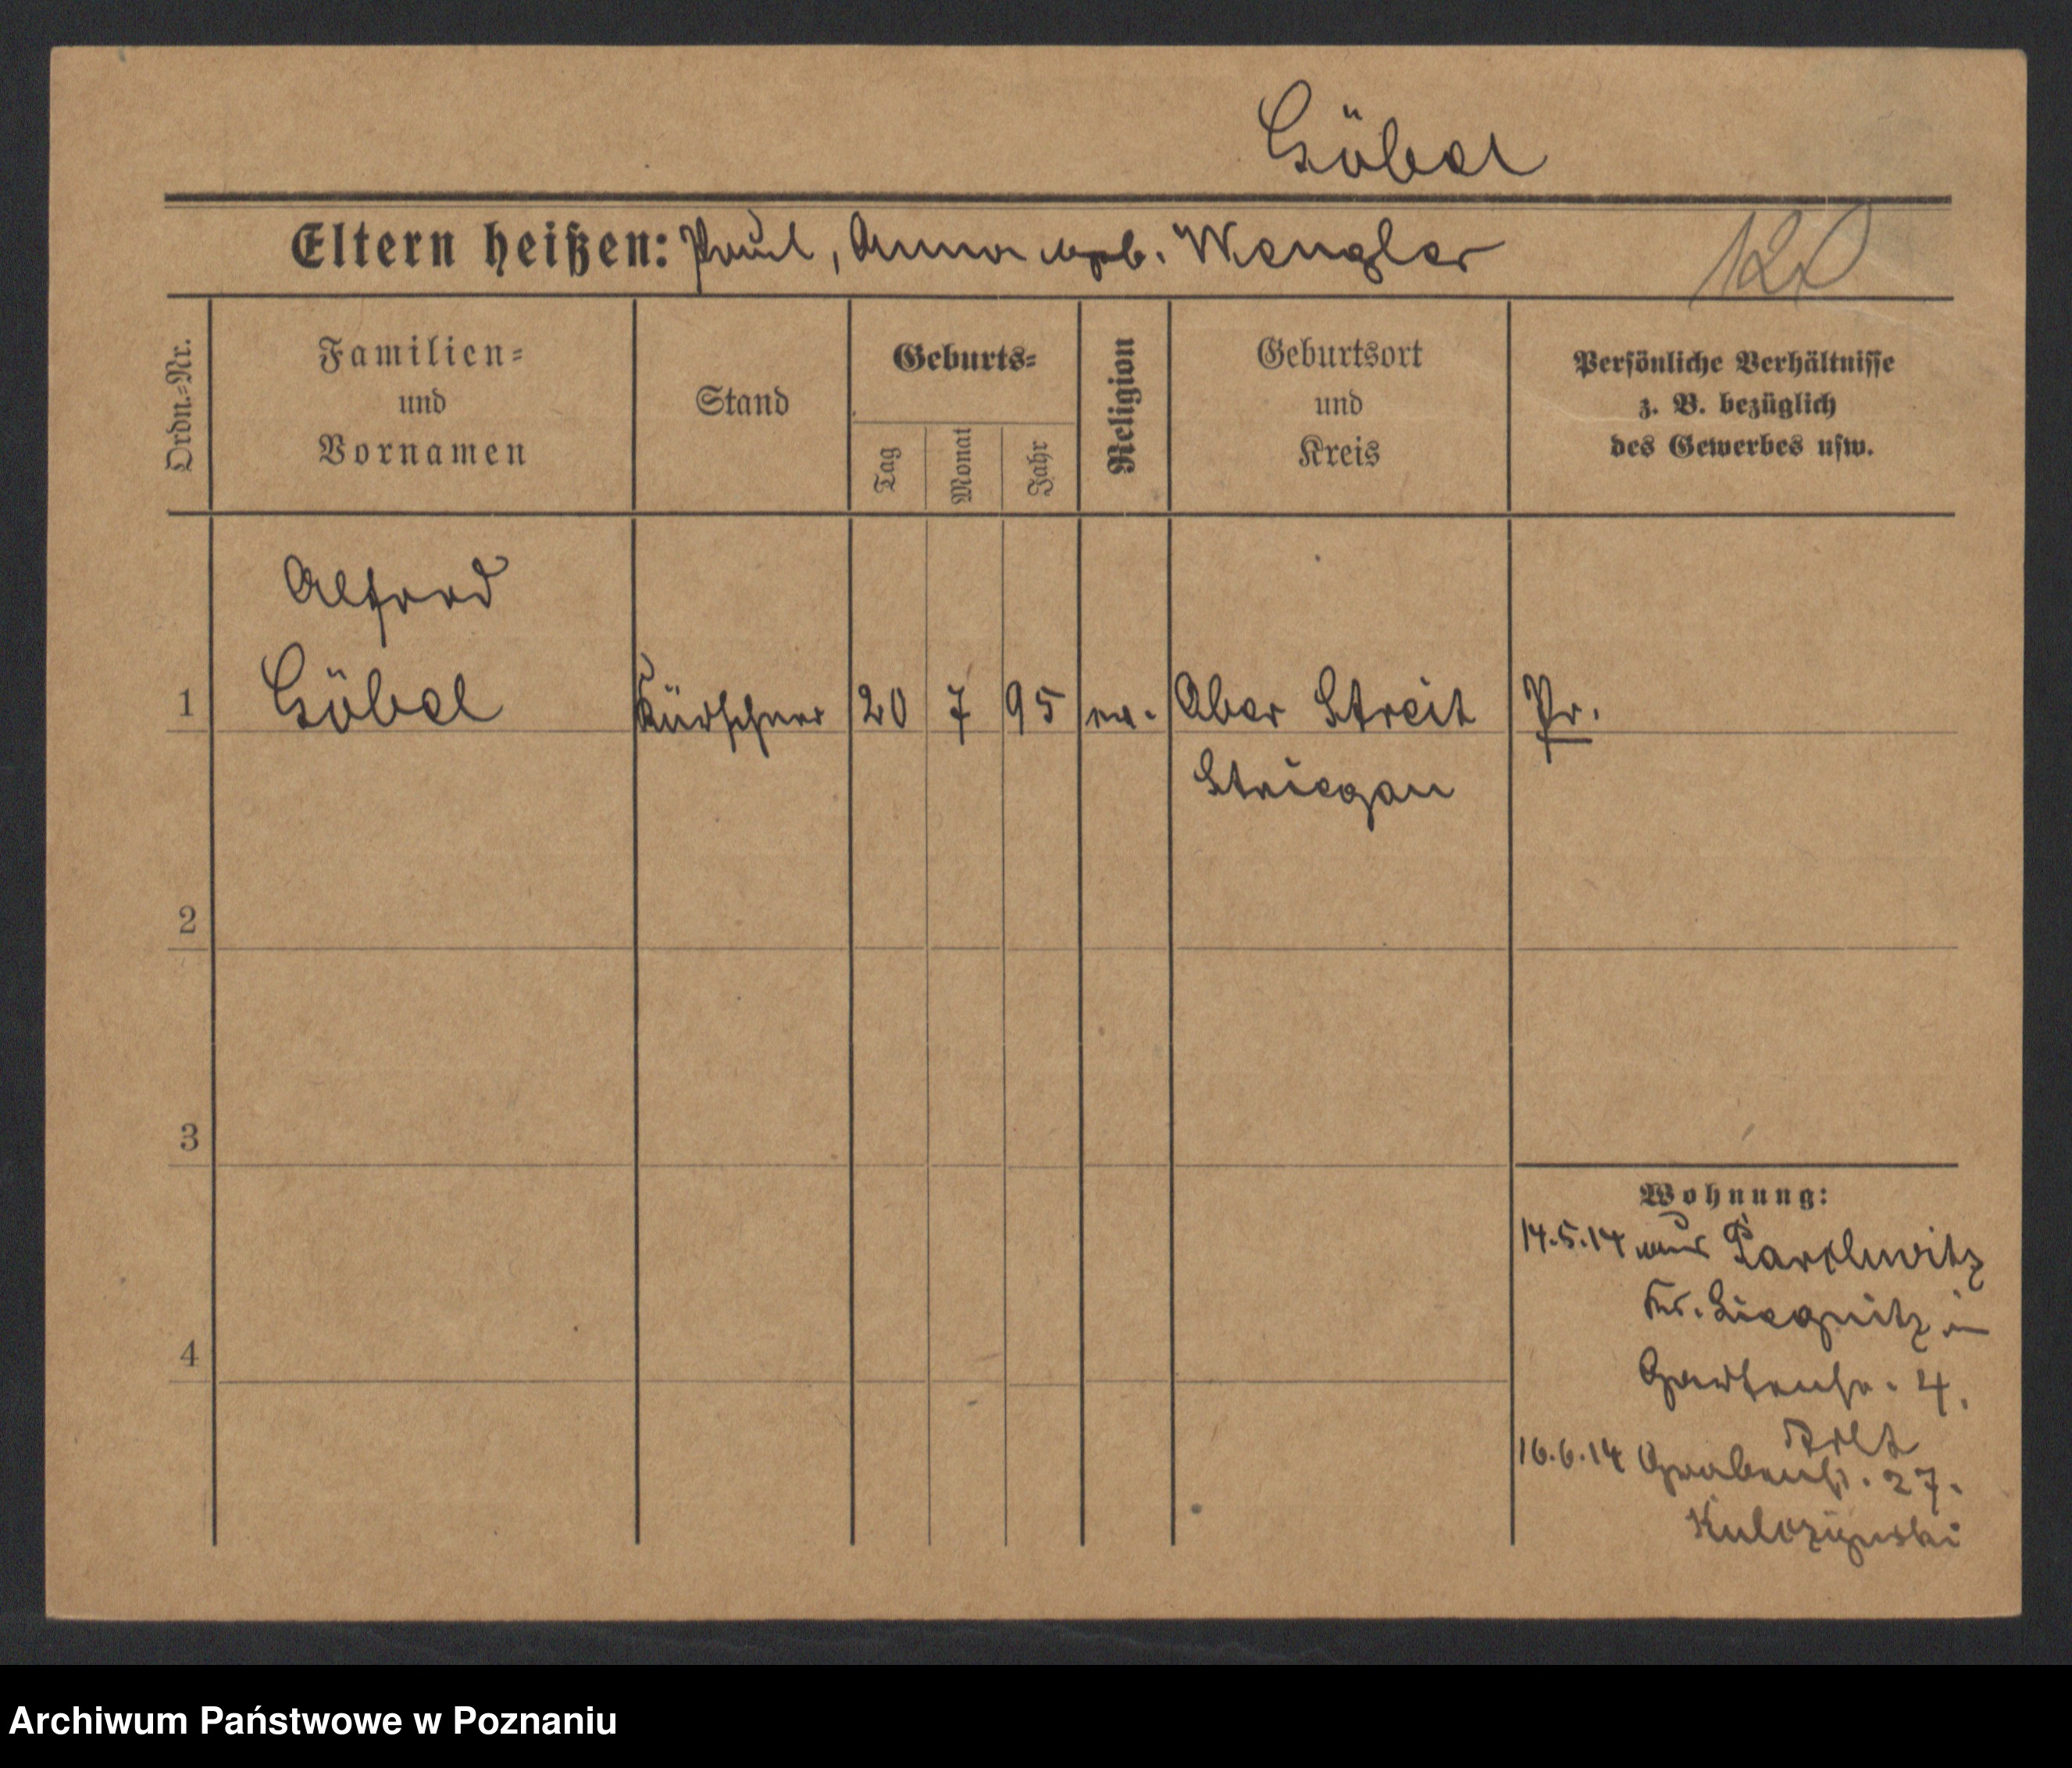 Göbel
Eltern heißen: Paul, Anna geb. Wengler
120
Ordn.-Nr.
Familien- und Vornamen
Stand
Geburts-
Tag
Monat
Jahr
Religion
Geburtsort und Kreis
Persönliche Verhältnisse z. B. bezüglich des Gewerbes usw.
Alfred
1 Göbel Kürschner 20 7 95 ev. Ober Streit Pr.
Striegau
2
3
4
Wohnung:
14.5.14 aus Parchwitz
Kr. Liegnitz in
Gartenstr. 4.
16.6.14 Grabenstr. 27.
Archiwum Państwowe w Poznaniu